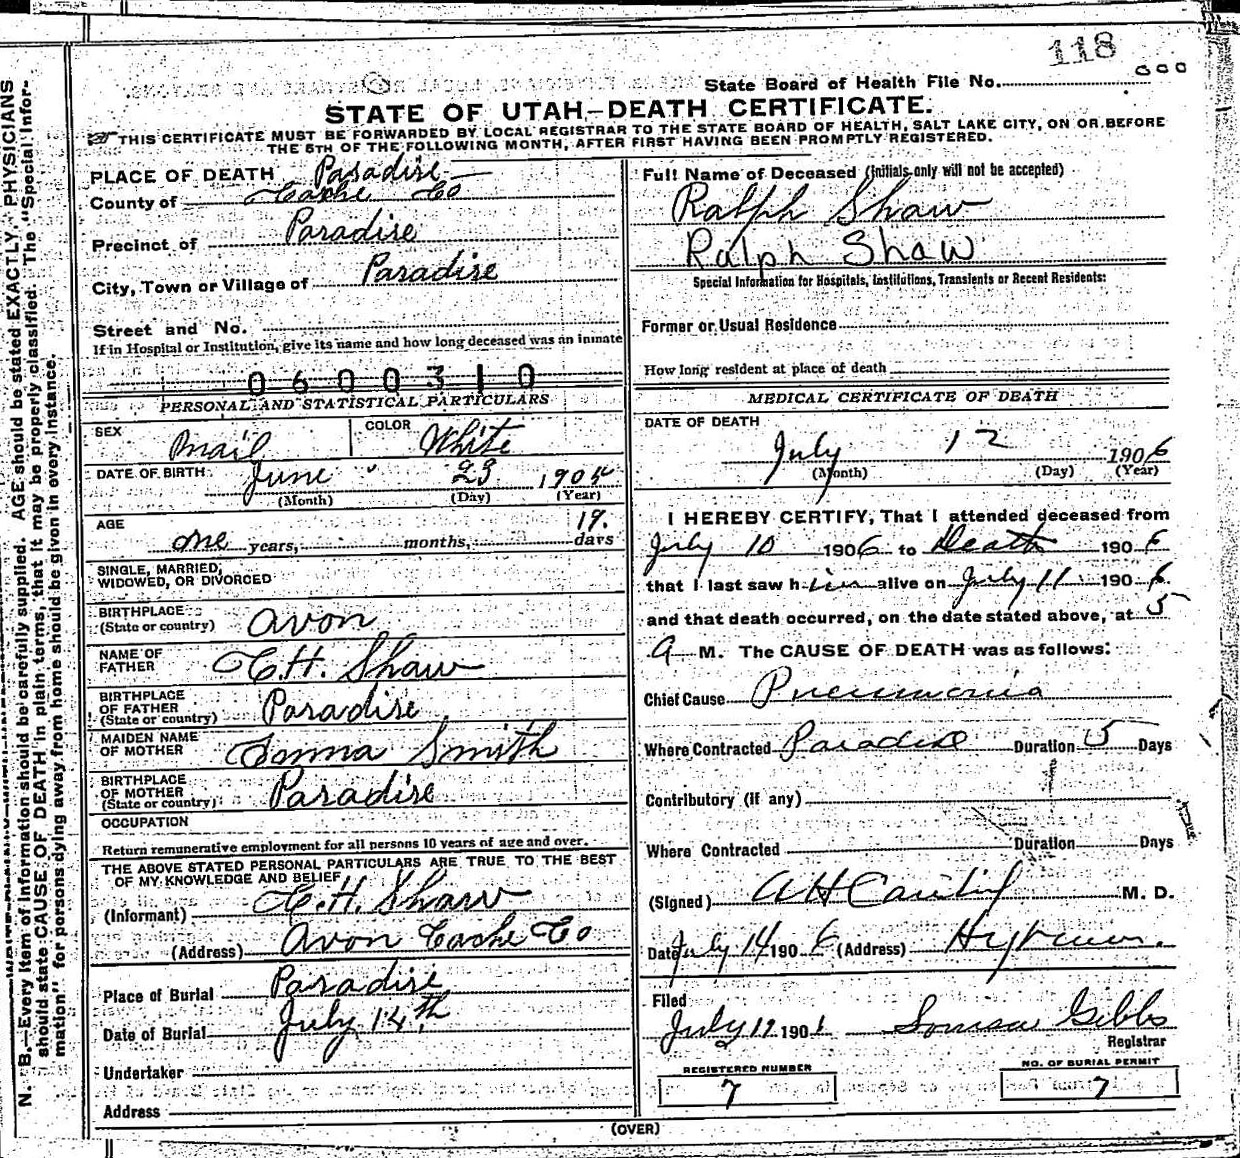 118
State Board of Health File No. 000
STATE OF UTAH—DEATH CERTIFICATE.
THIS CERTIFICATE MUST BE FORWARDED BY LOCAL REGISTRAR TO THE STATE BOARD OF HEALTH, SALT LAKE CITY, ON OR BEFORE
THE 5TH OF THE FOLLOWING MONTH, AFTER FIRST HAVING BEEN PROMPTLY REGISTERED.
N. B.—Every item of information should be carefully supplied. AGE should be stated EXACTLY. PHYSICIANS
should state CAUSE OF DEATH in plain terms, that it may be properly classified. The "Special Infor-
mation" for persons dying away from home should be given in every instance.
PLACE OF DEATH Paradise
County of Cache Co
Precinct of Paradise
City, Town or Village of Paradise
Street and No.
If in Hospital or Institution, give its name and how long deceased was an inmate
0600310
PERSONAL AND STATISTICAL PARTICULARS
SEX mail COLOR White
DATE OF BIRTH June 23 1905
(Month) (Day) (Year)
AGE
one years, months, 19. days
SINGLE, MARRIED,
WIDOWED, OR DIVORCED
BIRTHPLACE
(State or country) Avon
NAME OF
FATHER T.H. Shaw
BIRTHPLACE
OF FATHER
(State or country) Paradise
MAIDEN NAME
OF MOTHER Emma Smith
BIRTHPLACE
OF MOTHER
(State or country) Paradise
OCCUPATION
Return remunerative employment for all persons 10 years of age and over.
THE ABOVE STATED PERSONAL PARTICULARS ARE TRUE TO THE BEST
OF MY KNOWLEDGE AND BELIEF
(Informant) T.H. Shaw
(Address) Avon Cache Co
Place of Burial Paradise
Date of Burial July 14th
Undertaker
Address
Full Name of Deceased (Initials only will not be accepted)
Ralph Shaw
Ralph Shaw
Special Information for Hospitals, Institutions, Transients or Recent Residents:
Former or Usual Residence
How long resident at place of death
MEDICAL CERTIFICATE OF DEATH
DATE OF DEATH
July 12 1906
(Month) (Day) (Year)
I HEREBY CERTIFY, That I attended deceased from
July 10 1906 to Death 1906
that I last saw him alive on July 11 1906
and that death occurred, on the date stated above, at 5
A M. The CAUSE OF DEATH was as follows:
Chief Cause Pneumonia
Where Contracted Paradise Duration 5 Days
Contributory (if any)
Where Contracted Duration Days
(Signed) A H M. D.
Date July 14 1906 (Address)
Filed
July 190 Louisa Gibbs
Registrar
REGISTERED NUMBER
7
NO. OF BURIAL PERMIT
7
(OVER)